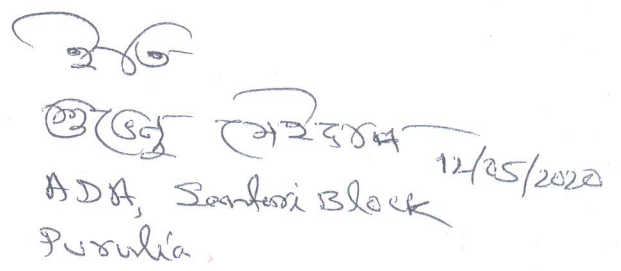 ইতি
শুভেন্দু
12/05/2020
ADA, Santuri Block
Purulia